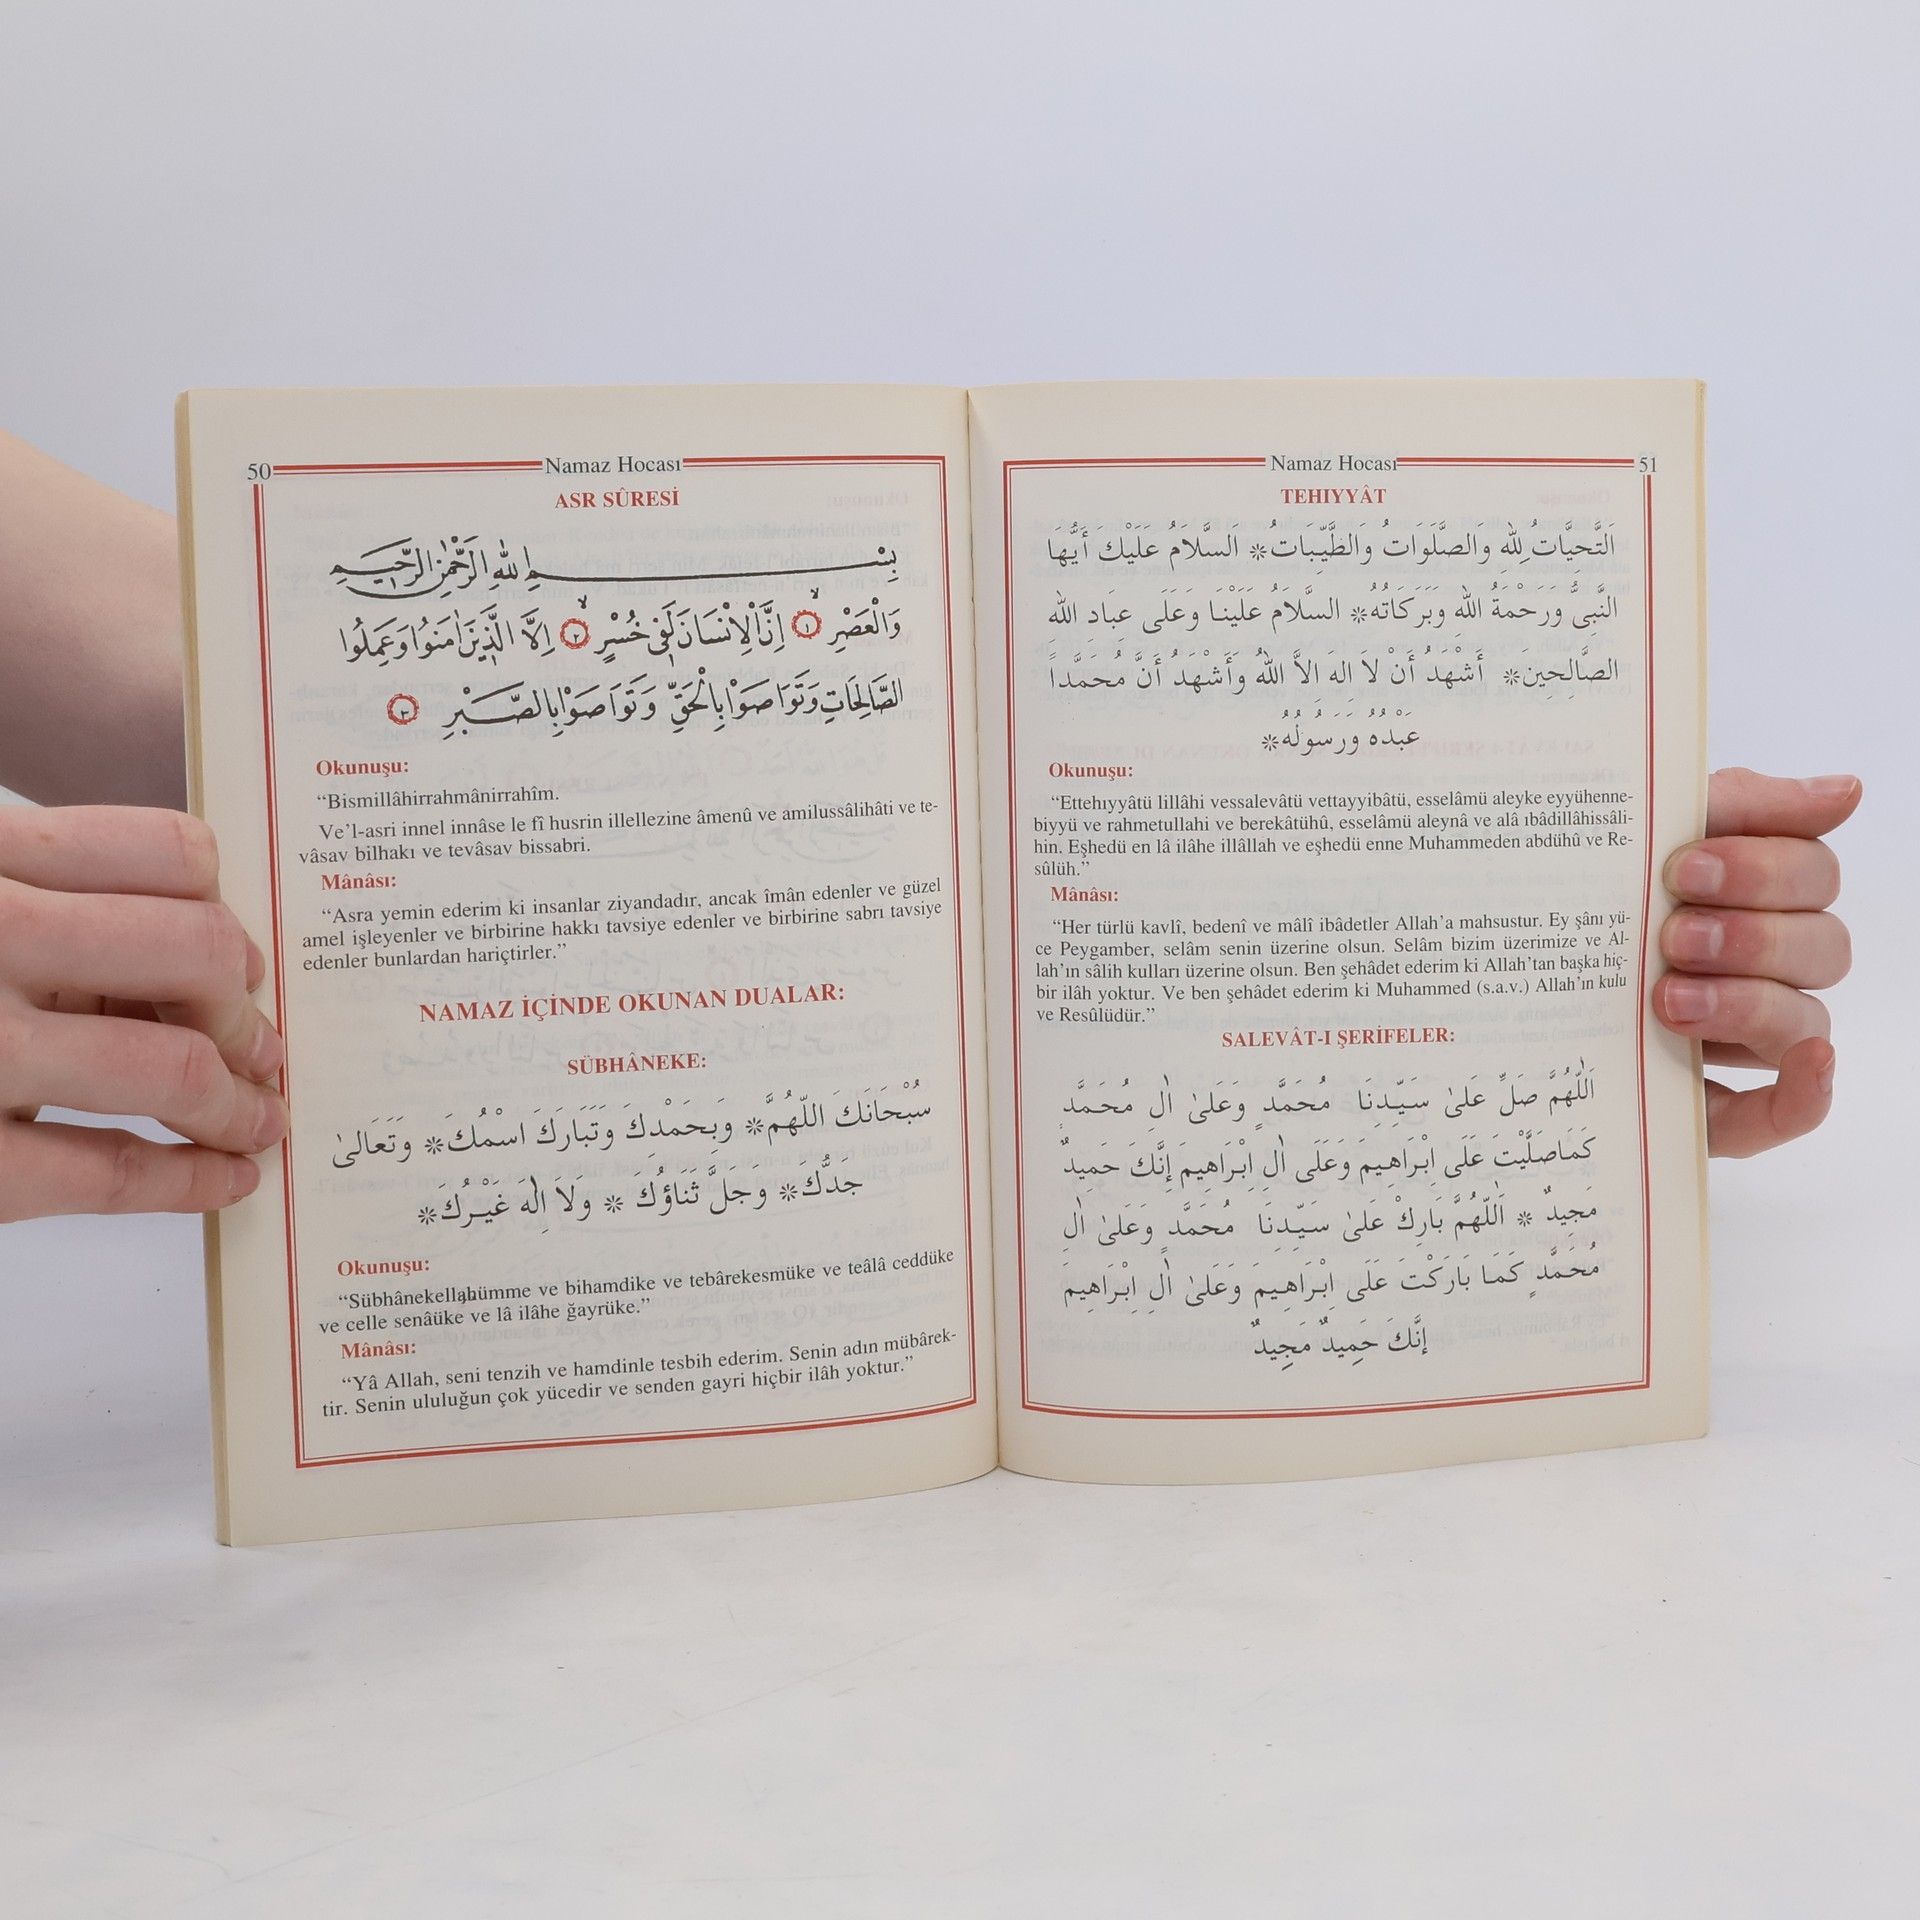 50 Namaz Hocası
ASR SÛRESİ
بِسْمِ اللهِ الرَّحْمٰنِ الرَّحِيمِ
وَالْعَصْرِ ١ اِنَّ الْاِنْسَانَ لَفِى خُسْرٍ ٢ اِلَّا الَّذِينَ اٰمَنُوا وَعَمِلُوا
الصَّالِحَاتِ وَتَوَاصَوْا بِالْحَقِّ وَتَوَاصَوْا بِالصَّبْرِ ٣
Okunuşu:
“Bismillâhirrahmânirrahîm.
Ve’l-asri innel innâse le fî husrin illellezine âmenû ve amilussâlihâti ve te-
vâsav bilhakı ve tevâsav bissabri.
Mânâsı:
“Asra yemin ederim ki insanlar ziyandadır, ancak îmân edenler ve güzel
amel işleyenler ve birbirine hakkı tavsiye edenler ve birbirine sabrı tavsiye
edenler bunlardan hariçtirler.”
NAMAZ İÇİNDE OKUNAN DUALAR:
SÜBHÂNEKE:
سُبْحَانَكَ اللّٰهُمَّ* وَبِحَمْدِكَ وَتَبَارَكَ اسْمُكَ* وَتَعَالىٰ
جَدُّكَ* وَجَلَّ ثَنَاؤُكَ * وَلاَ اِلٰهَ غَيْرُكَ*
Okunuşu:
“Sübhânekellahümme ve bihamdike ve tebârekesmüke ve teâlâ ceddüke
ve celle senâüke ve lâ ilâhe ğayrüke.”
Mânâsı:
“Yâ Allah, seni tenzih ve hamdinle tesbih ederim. Senin adın mübârek-
tir. Senin ululuğun çok yücedir ve senden gayri hiçbir ilâh yoktur.”
Namaz Hocası 51
TEHIYYÂT
اَلتَّحِيَّاتُ لِلّٰهِ وَالصَّلَوَاتُ وَالطَّيِّبَاتُ* اَلسَّلاَمُ عَلَيْكَ أَيُّهَا
النَّبِىُّ وَرَحْمَةُ اللهِ وَبَرَكَاتُهُ* السَّلاَمُ عَلَيْنَا وَعَلَى عِبَادِ اللهِ
الصَّالِحِينَ* أَشْهَدُ أَنْ لاَ اِلهَ اِلاَّ اللهُ وَأَشْهَدُ أَنَّ مُحَمَّداً
عَبْدُهُ وَرَسُولُهُ*
Okunuşu:
“Ettehıyyâtü lillâhi vessalevâtü vettayyibâtü, esselâmü aleyke eyyühenne-
biyyü ve rahmetullahi ve berekâtühû, esselâmü aleynâ ve alâ ıbâdillâhissâli-
hin. Eşhedü en lâ ilâhe illâllah ve eşhedü enne Muhammeden abdühû ve Re-
sûlüh.”
Mânâsı:
“Her türlü kavlî, bedenî ve mâlî ibâdetler Allah’a mahsustur. Ey şânı yü-
ce Peygamber, selâm senin üzerine olsun. Selâm bizim üzerimize ve Al-
lah’ın sâlih kulları üzerine olsun. Ben şehâdet ederim ki Allah’tan başka hiç-
bir ilâh yoktur. Ve ben şehâdet ederim ki Muhammed (s.a.v.) Allah’ın kulu
ve Resûlüdür.”
SALEVÂT-I ŞERİFELER:
اَللّٰهُمَّ صَلِّ عَلىٰ سَيِّدِنَا مُحَمَّدٍ وَعَلىٰ اٰلِ مُحَمَّدٍ
كَمَاصَلَّيْتَ عَلَى اِبْرَاهِيمَ وَعَلَى اٰلِ اِبْرَاهِيمَ إِنَّكَ حَمِيدٌ
مَجِيدٌ * اَللّٰهُمَّ بَارِكْ عَلىٰ سَيِّدِنَا مُحَمَّدٍ وَعَلىٰ اٰلِ
مُحَمَّدٍ كَمَا بَارَكْتَ عَلَى اِبْرَاهِيمَ وَعَلىٰ اٰلِ اِبْرَاهِيمَ
إِنَّكَ حَمِيدٌ مَجِيدٌ